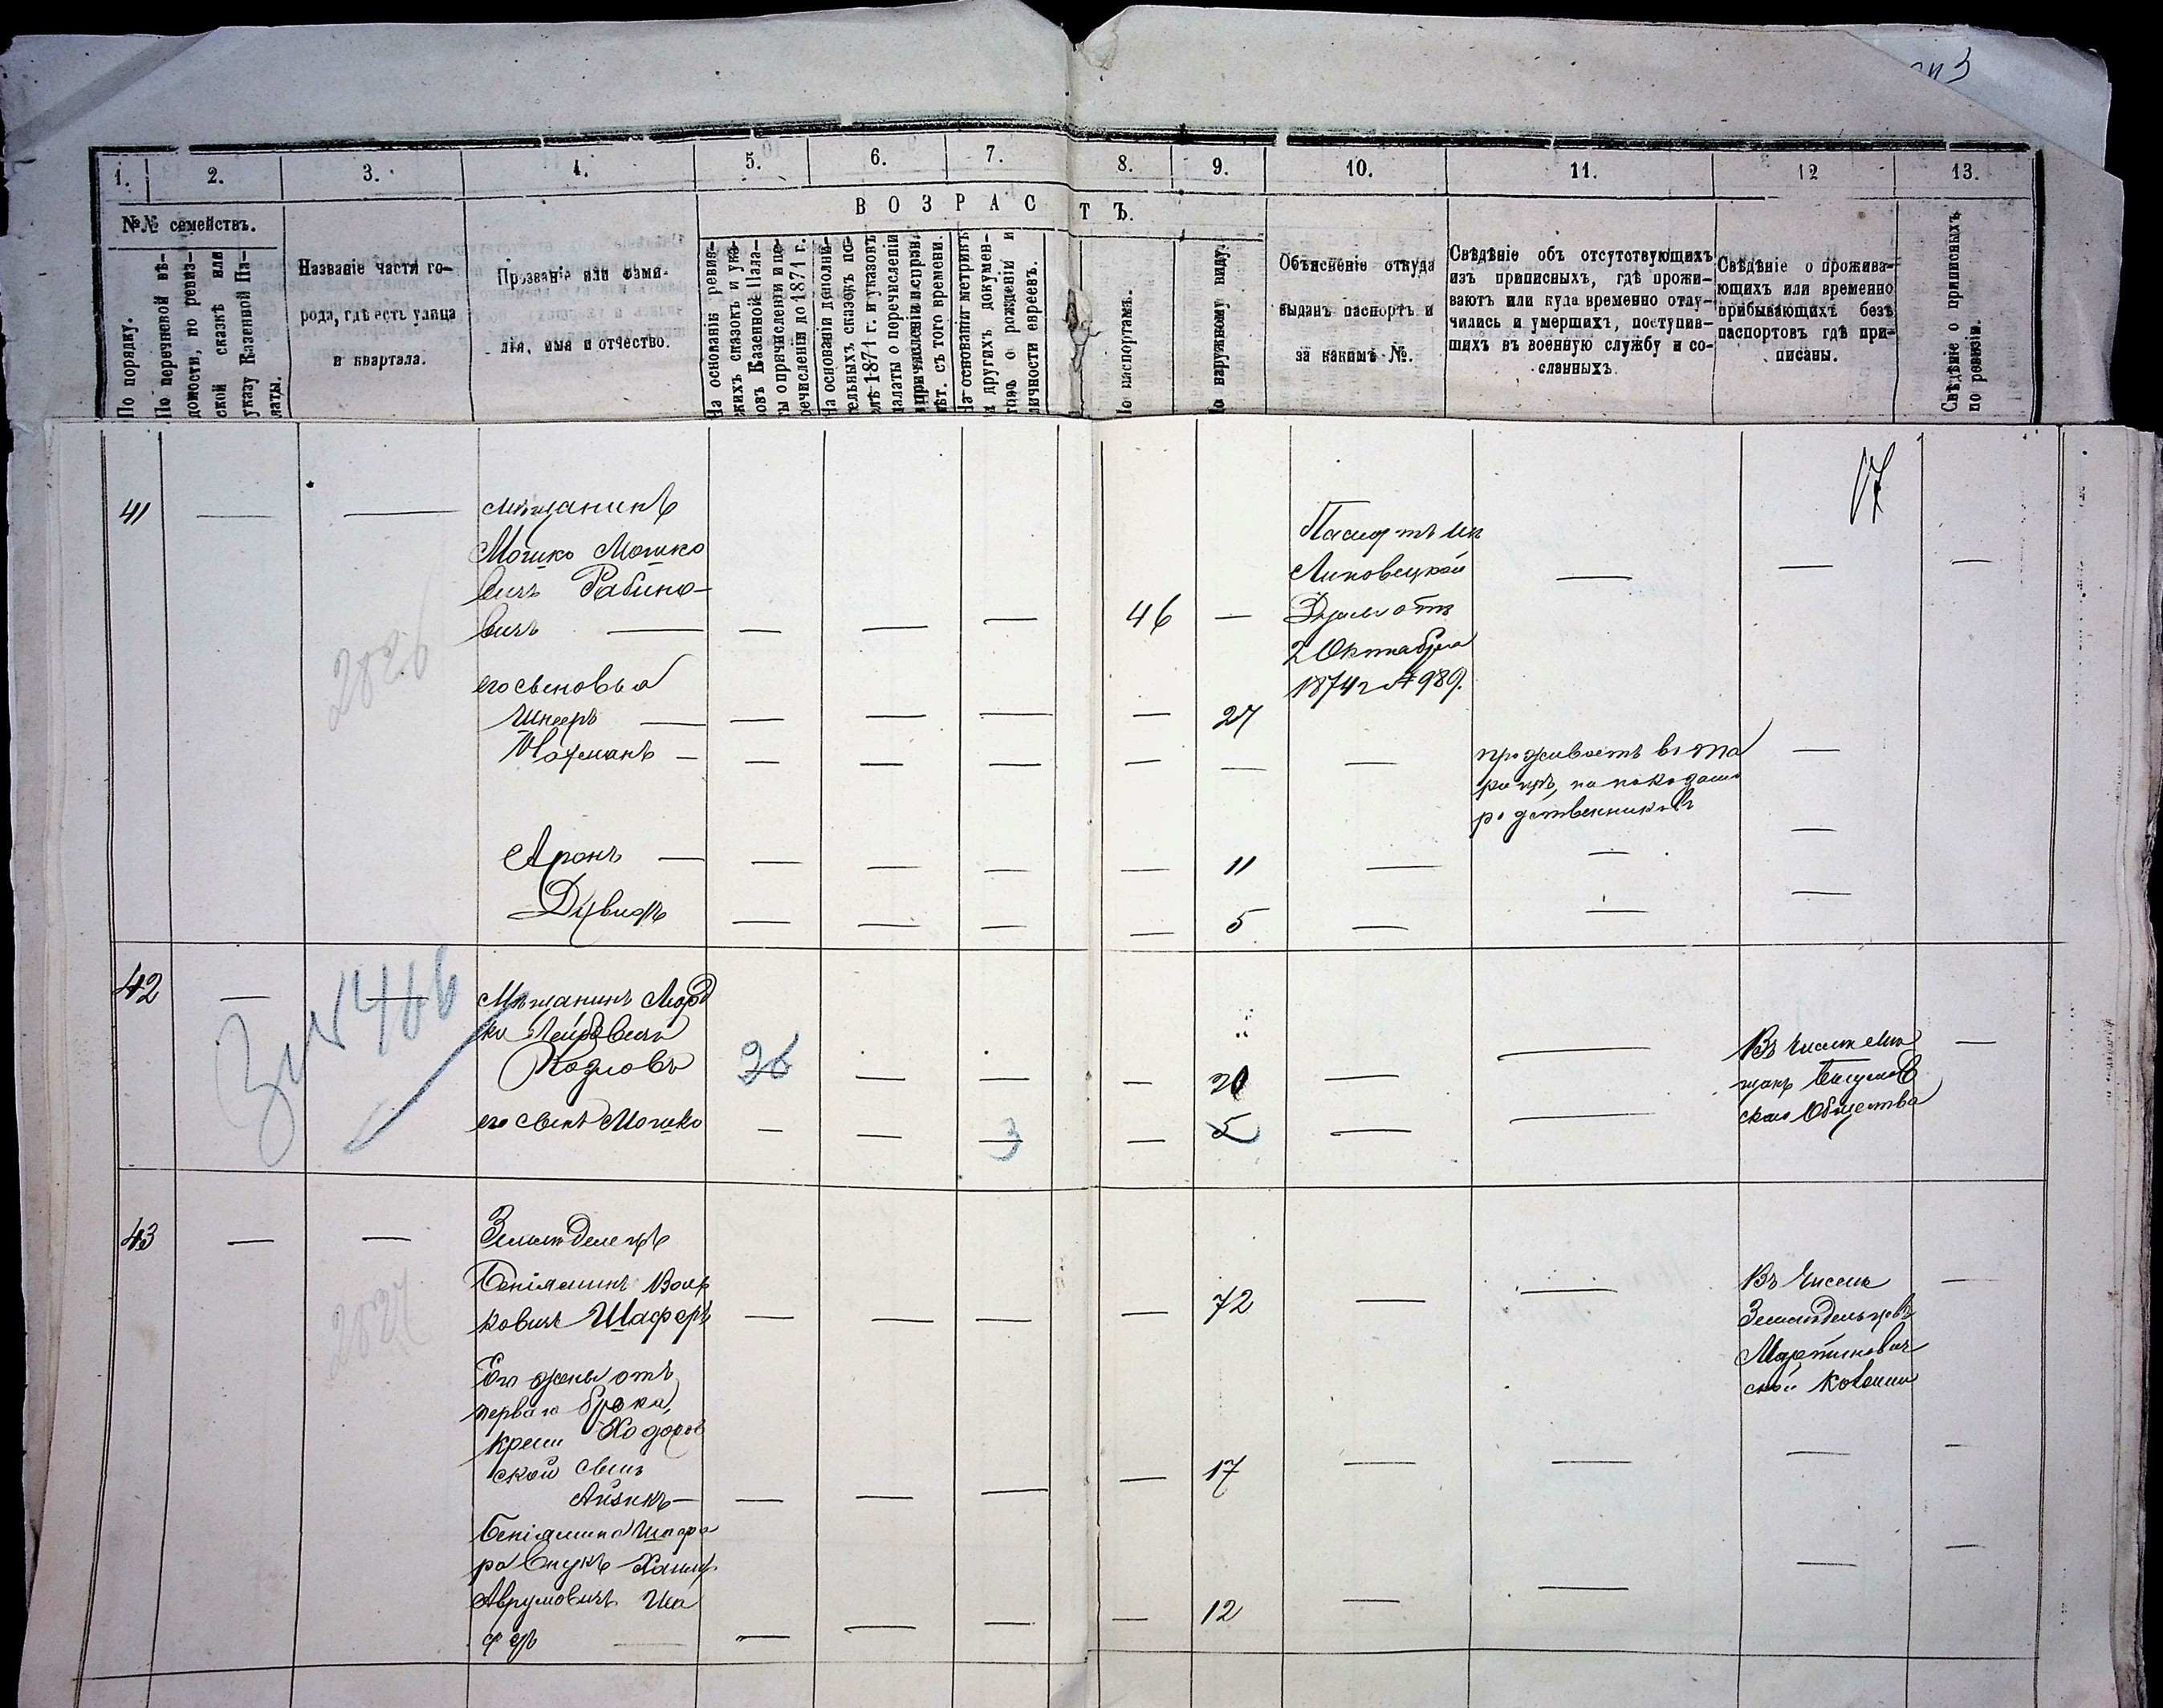 1.
2.
3.
4.
5.
6.
7.
8.
9.
10.
11.
12
13.
В О З Р А С Т Ъ.
№№ семействъ.
По порядку.
По перечневой вѣ-
домости, по ревиз-
ской сказкѣ или
указу Казенной Па-
латы.
Названіе части го-
рода, гдѣ есть улица
и квартала.
Прозваніе или фами-
лія, имя и отчество.
На основаніи ревиз-
скихъ сказокъ и ука-
зовъ Казенной Пала-
ты о причисленіи и пе-
речисленіи до 1871 г.
На основаніи дополни-
тельныхъ сказокъ по-
слѣ 1871 г. и указовъ
палаты о перечисленіи
и причисленіи и исправл.
лѣт. съ того времени.
На основаніи метрикъ
и другихъ докумен-
товъ о рожденіи и
личности евреевъ.
По паспортамъ.
По наружному виду.
Объясненіе откуда
выданъ паспортъ и
за какимъ №.
Свѣдѣніе объ отсутствующихъ
изъ приписныхъ, гдѣ прожи-
ваютъ или куда временно отлу-
чились и умершихъ, поступив-
шихъ въ военную службу и со-
сланныхъ.
Свѣдѣніе о прожива-
ющихъ или временно
прибывающихъ безъ
паспортовъ гдѣ при-
писаны.
Свѣдѣніе о приписныхъ
по ревизіи.
17
41
мѣщанинъ
Мошко Мошко
вичъ Рабино-
вичъ
46
Липовецкой
Думы отъ
2 Октября
1874 г № 989.
2826
его сыновья
Шнееръ
27
Нахманъ
проживаетъ въ Та
раще, по показанію
родственниковъ
Аронъ
11
Дувидъ
5
42
Зри № 466
Мѣщанинъ Морд
ко Лейбовичъ
Козловъ
26
20
Въ числѣ мѣ
щанъ
скаго Общества
его сынъ Мошко
3
5
43
Земледелецъ
Беніяминъ Воль
ковичъ Шаферъ
72
Въ числѣ
Земледельцевъ
Мартинович
ской колоніи
2827
Его жены отъ
перваго брака,
Крейи Ходоров
ской сынъ
Айзикъ
17
Беніямина Шафе
ра внукъ Хаимъ
Аврумовичъ Ша
феръ
12